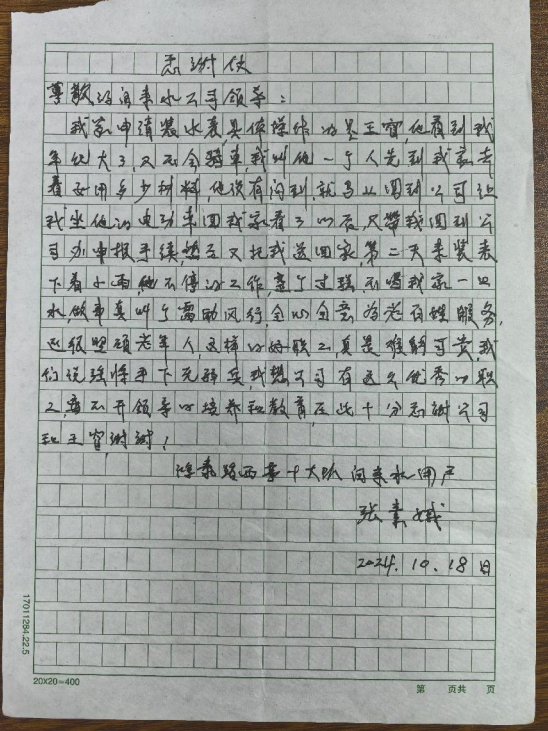 感谢信
尊敬的自来水公司领导：
我家申请装水表，具体操作的是王富他看到我
年纪大了，又不会骑车，我叫他一个人先到我家去
看要用多少材料，他没有问到，就马上回到公司让
我坐他的电动车回我家看了以后，又带我回到公
司办申报手续，然后又把我送回家，第二天来装表
下着小雨，他不停的工作，整个过程不喝我家一口
水，做事真叫个雷励风行，全心全意为老百姓服务，
还很照顾老年人，这样的好职工，真是难能可贵我
们说强将手下无弱兵，我想公司有这么优秀的职
工，离不开领导的培养和教育在此十分感谢公司
和王富，谢谢！
路西 十大队 自来水用户
张素娥
2024.10.18日
17011264.22.5
20X20=400
第 页共 页